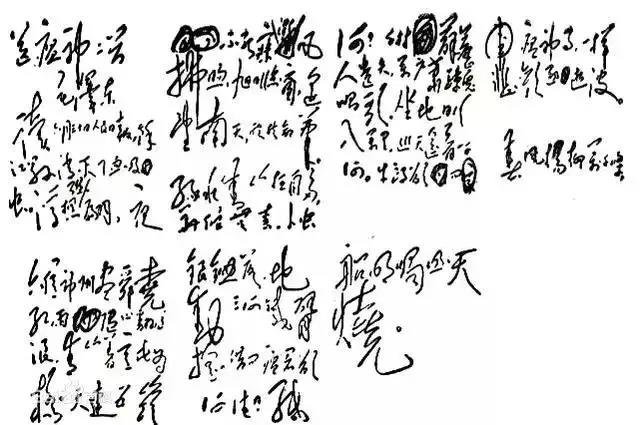 送瘟神二首
毛泽东
读六月卅日人民日报,余
江县消灭了血吸
虫,浮想联翩,夜
不能寐,微风
拂煦,旭日临窗,遥
望南天,欣然命笔。
绿水青山枉自多,
华佗无奈小虫
何!千村薜荔
人遗矢,万户萧疏鬼
唱歌。坐地日行
八万里,巡天遥看一千
河。牛郎欲问
瘟神事,一样
悲欢逐逝波。
春风杨柳万千条
六亿神州尽舜尧
红雨随心翻作
浪,青山着意化为
桥。天连五岭
银锄落,地
动三河铁臂
摇。借问瘟君欲
何往?纸
船明烛照天
烧。